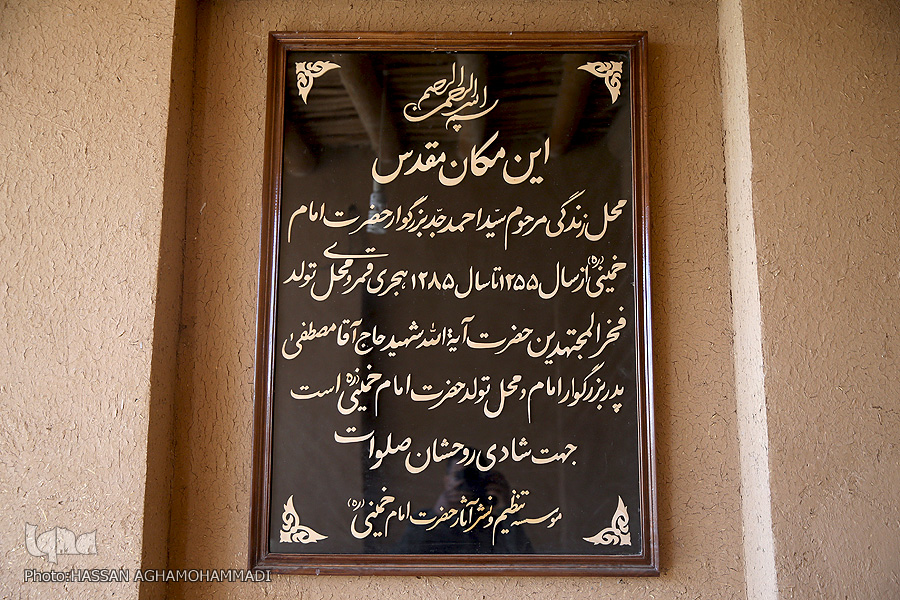 بسم الله الرحمن الرحیم
این مکان مقدس
محل زندگی مرحوم سیّد احمد جدّ بزرگوار حضرت امام
خمینی (ره) از سال ۱۲۵۵ تا سال ۱۲۸۵ هجری قمری و محل تولد
فخر المجتهدین حضرت آیة الله شهید حاج آقا مصطفیٰ
پدر بزرگوار امام و محل تولد حضرت امام خمینی (ره) است
جهت شادی روحشان صلوات
موسسه تنظیم و نشر آثار حضرت امام خمینی (ره)
iqna
Photo:HASSAN AGHAMOHAMMADI